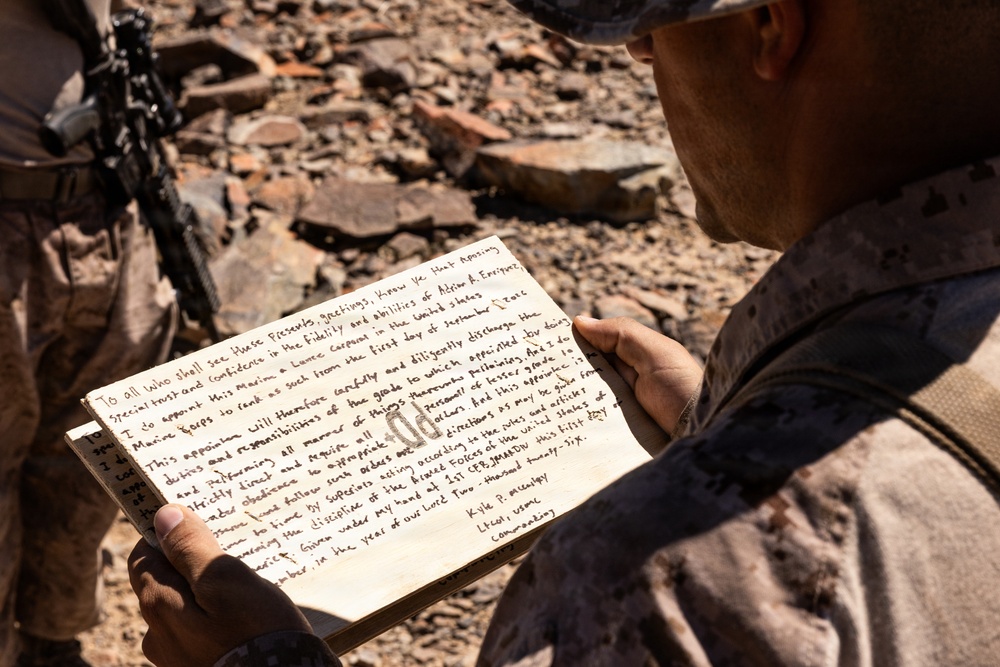 To all who shall see these Presents, greetings, Know Ye that reposing
special trust and confidence in the fidelity and abilities of Adrian A. Enriquez,
I do appoint this Marine a Lance corporal in the United States
Marine Corps to rank as such from the first day of September
This appointee will therefore carefully and diligently discharge the
duties and responsibilities of the grade to which appointed by doing
and performing all manner of things thereunto pertaining. And I do
strictly direct and require all personnel of lesser grade to
render obedience to appropriate orders. And this appointee is to
observe and follow such orders and directions as may be given from
time to time by Superiors acting according to the rules and articles
governing the discipline of the Armed Forces of the United States of
America. Given under my hand at 1st CEB, this first day of
in the year of our Lord Two-thousand twenty-six.
Kyle P.
LtCol, USMC
Commanding
To
I do